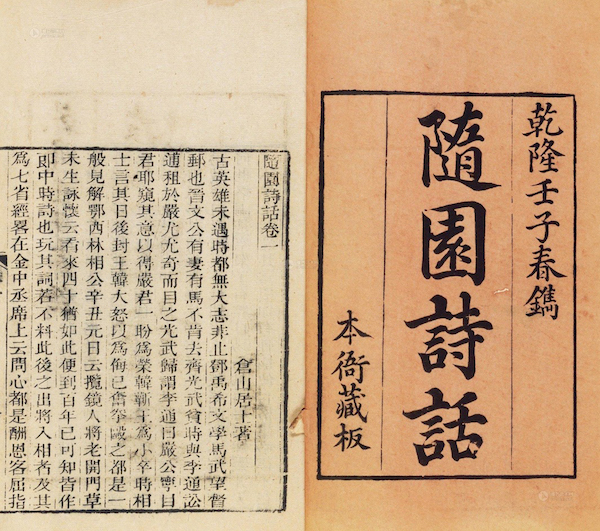 乾隆壬子春鐫
隨園詩話
本衙藏板
隨園詩話卷一
倉山居士著
古英雄未遇時都無大志非止鄧禹希文學馬武望督
郵也晉文公有妻有馬不肯去齊光武貧時與李通訟
逋租於嚴尤尤奇而目之光武歸謂李通曰嚴公寧目
君耶窺其意以得嚴君一盼為榮韓蘄王為小卒時相
士言其日後封王韓大怒以為侮己奮拳毆之都是一
般見解鄂西林相公辛丑元日云攬鏡人將老開門草
未生詠懷云看來四十猶如此便到百年已可知皆作
郎中時詩也玩其詞若不料此後之出將入相者及其
為七省經畧在金中丞席上云問心都是酬恩客屈指